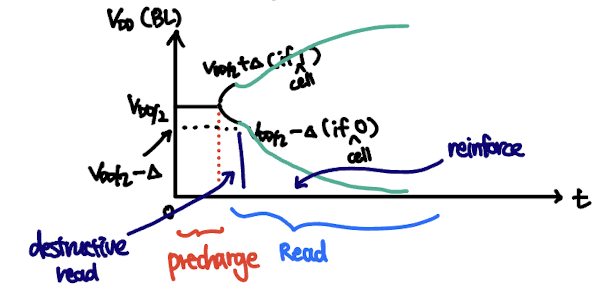 VDD (BL)
VDD/2 + Δ (if 1)
cell
VDD/2
VDD/2 - Δ (if 0)
cell
reinforce
VDD/2 - Δ
0
t
destructive
read
precharge
Read